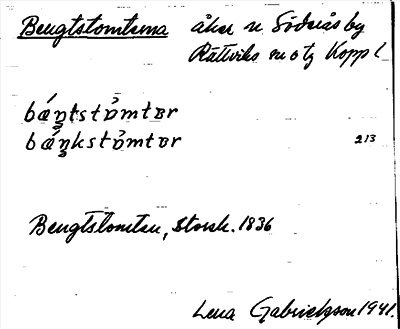 Bengtstomterna åker n Södra ås by
Rättviks sn o tg Kopp l
bǽŋtstɒ̀mtɐr
bǽŋkstɒ̀mtɐr 213
Bengtstomten, Storsk. 1836
Lena Gabrielsson 1941.